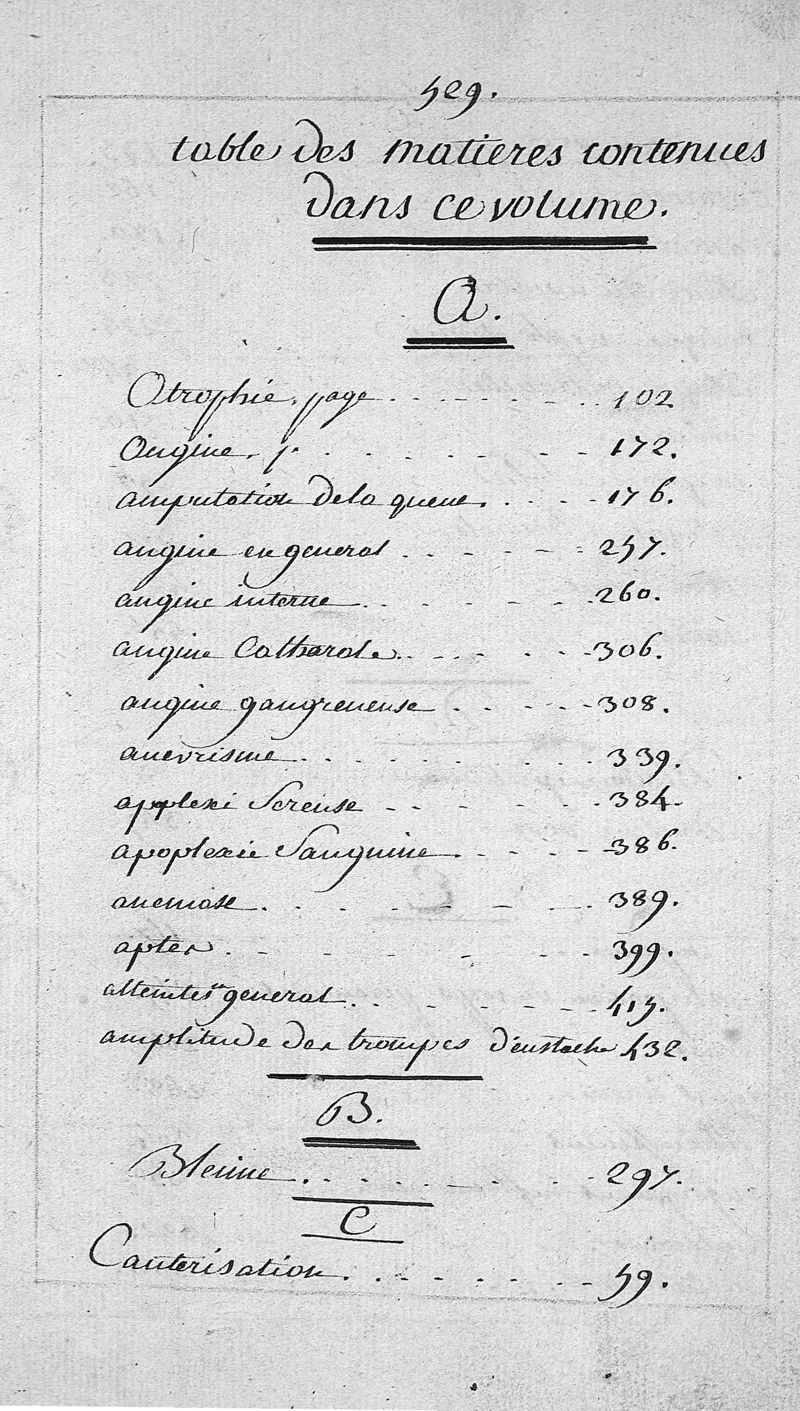 529.
table des matieres contenues
dans ce volume.
A.
Atrophie, page 102
Angine, p. 172.
amputation de la queue. 176.
angine en general 257.
angine interne 260.
angine Catharale 306.
angine gangreneuse 308.
anevrisme 339.
applexi Sereuse 384.
apoplexie Sanguine 386.
389.
aptes 399.
atteintes en general 515.
amplitude des trompes d'eustache 532.
B.
297.
C
Cauterisation 59.